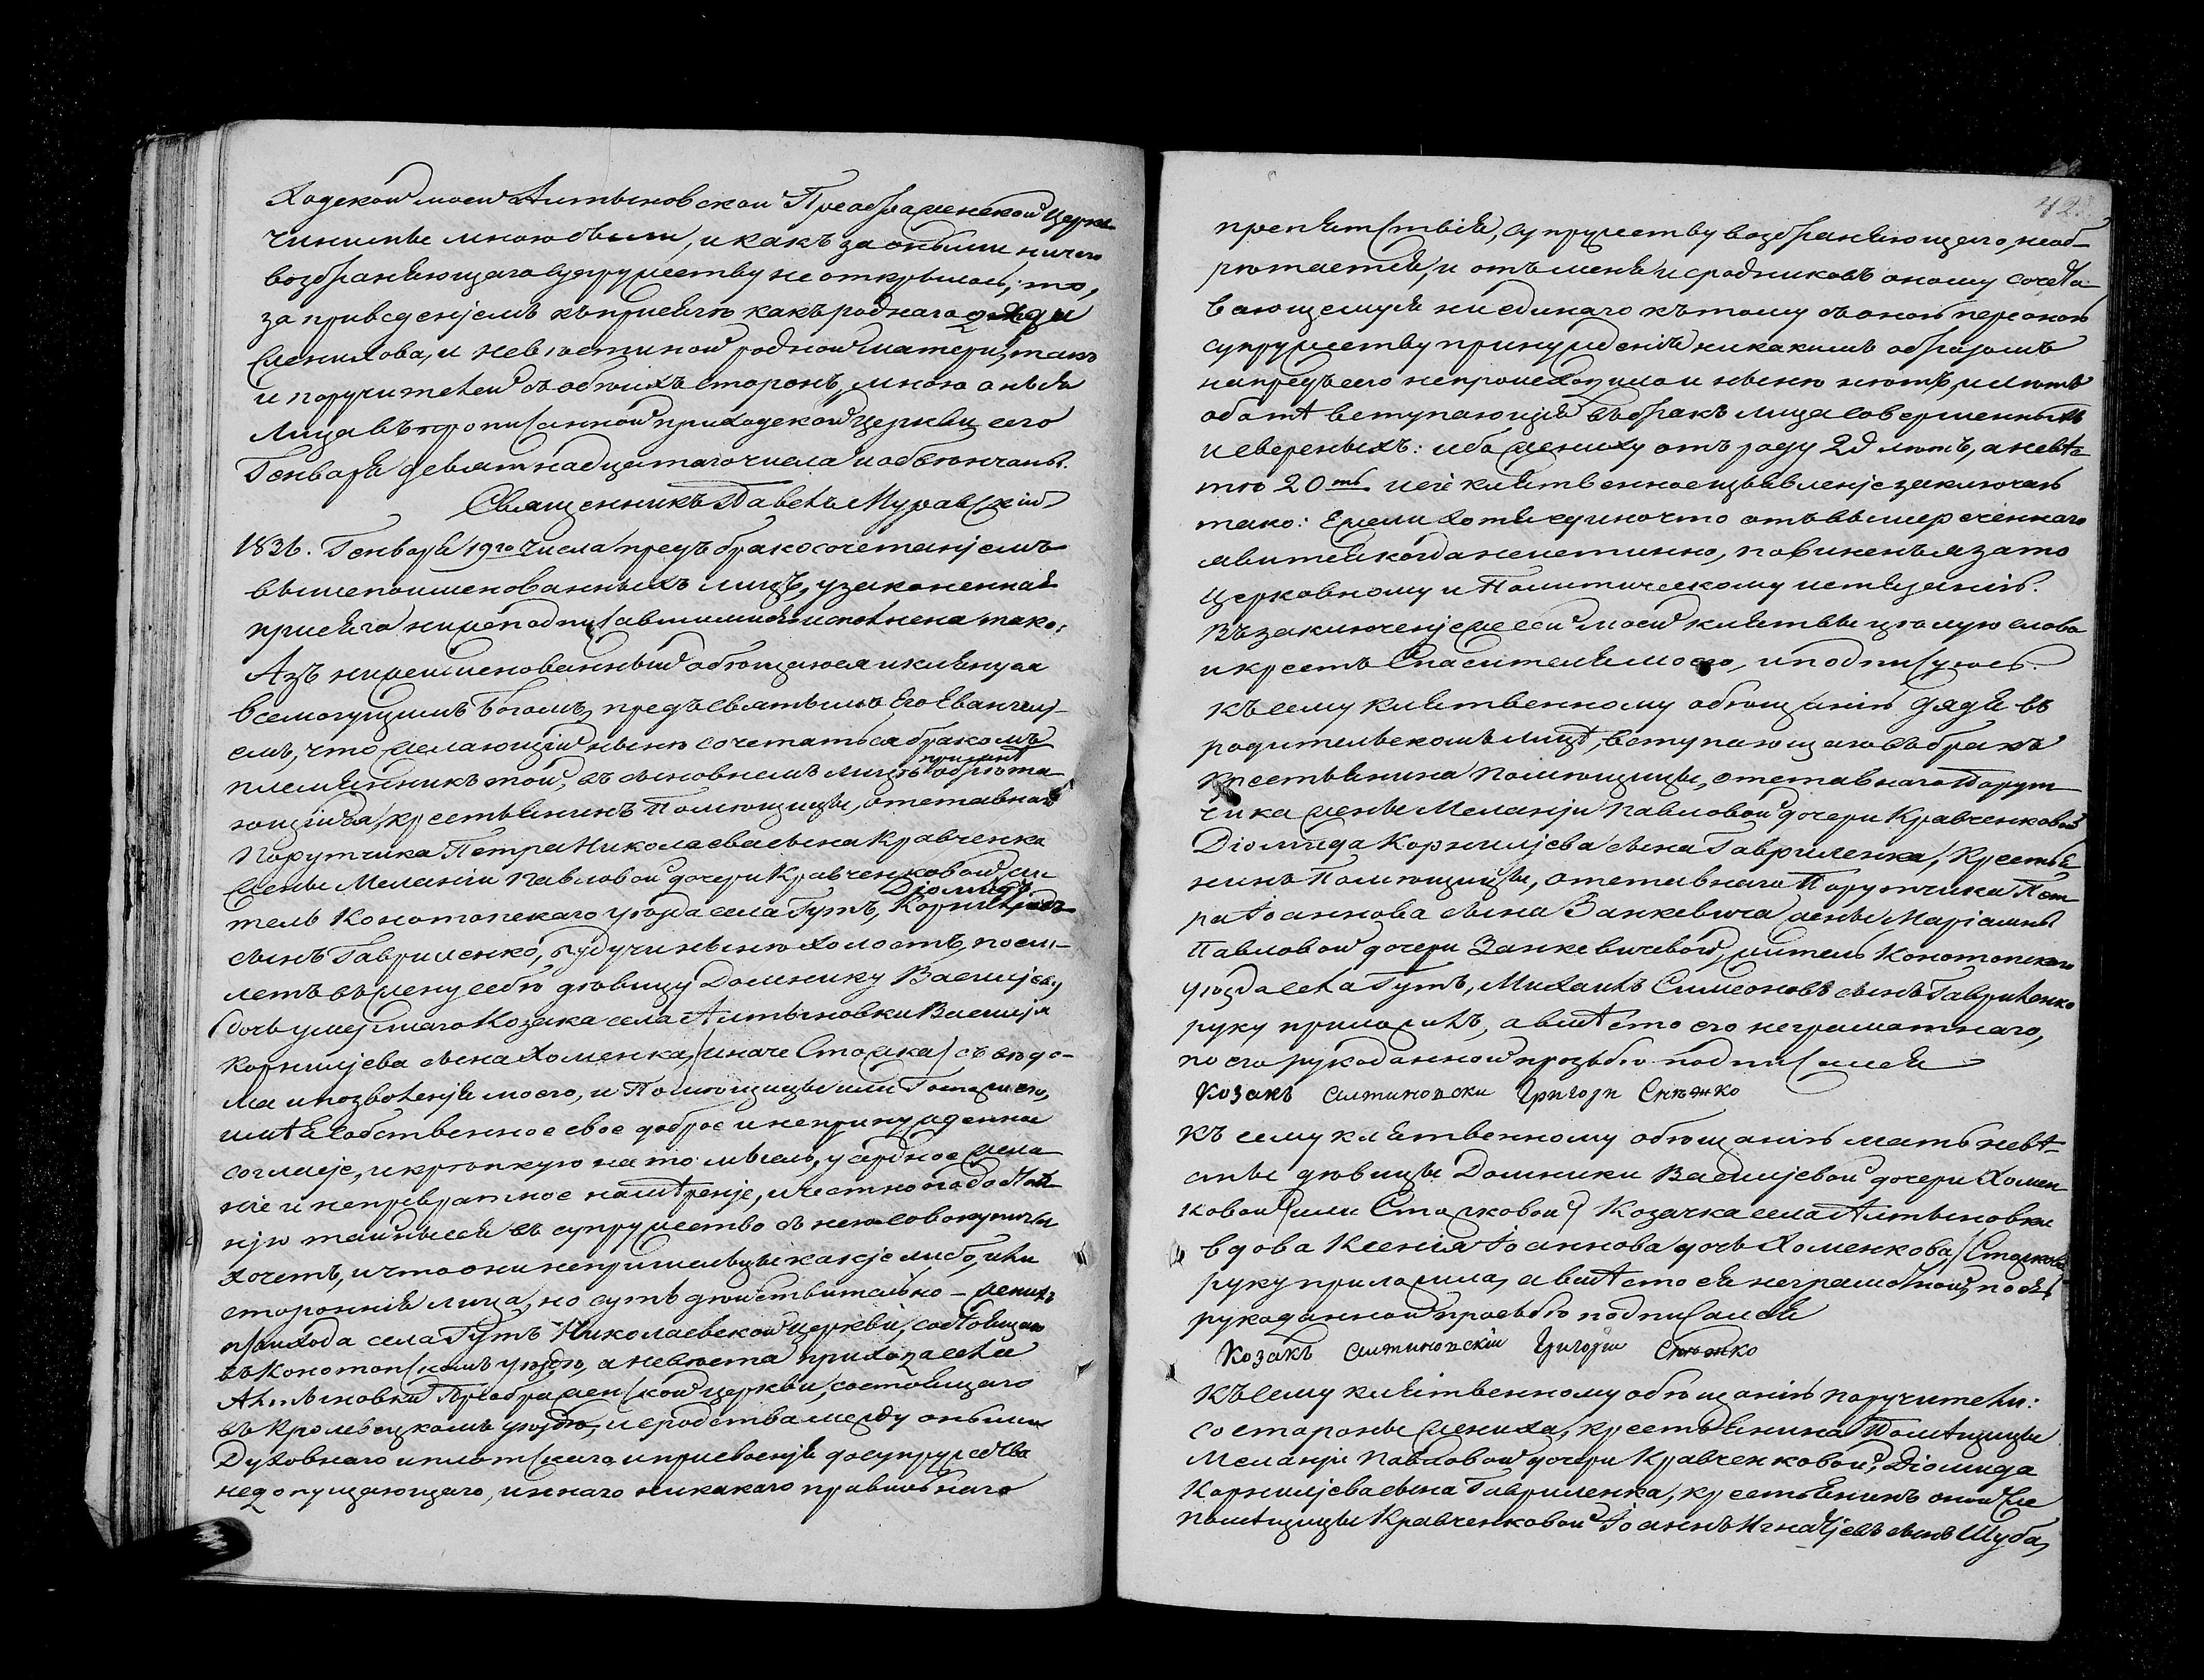 ходской моей Алтыновской Преображенской церкви
чинимы мною были, и какъ за оными ничего
возбраняющаго супружеству не открылось; то,
за приведенјемъ къ присягѣ какъ роднаго дяди
женихова, и невѣстиной родной матери, такъ
и поручителей съ обоихъ сторонъ, мною оныя
лица въ прописанной приходской церкви сего
Генваря девятнадцатаго числа и обвѣнчаны.
Священникъ Павелъ Муравскій
1836. Генваря 19го числа предъ бракосочетанјемъ
вышепоименованныхъ лицъ, узаконенная
присяга нижеподписавшимися исполнена тако:
Азъ нижеименованный обѣщаюся и кленуся
всемогущимъ Богомъ, предъ святымъ Его Евангелј-
емъ, что желающій нынѣ сочетаться бракомъ
племянникъ мой, въ сыновнемъ лицѣ обрѣта-
ющійся, крестьянинъ Помѣщицы, отставнаго
Порутчика Петра Николаева сына Кравченка
жены Меланіи Павловой дочери Кравченковой, жи-
тель Конотопскаго уѣзда села Гутъ, Діомидъ Корнилјевъ
сынъ Гавриленко, будучи нынѣ холостъ, поем-
летъ въ жену себѣ дѣвицу Домнику Василјеву
дочь умершаго Козака села Алтыновки Василја
Корнилјева сына Хоменка, (иначе Стожка) съ вѣдо-
ма и позволенјя моего, и Помѣщицы или Госпожи его,
имѣя собственное свое доброе и непринужденное
согласје, и крѣпкую на то мысль, усердное жела-
ніе и непревратное намѣренје, и честно
тайныся въ супружество съ нею совокупитьи
хочетъ, и что они непришельцы какје либо, или
сторонніе лица, но суть дѣйствительно – женихъ
прихода села Гутъ Николаевской церкви, состоящаго
въ Конотопскомъ уѣздѣ, а невѣста прихода села
Алтыновки Преображенской церкви, состоящаго
въ Кролевецкомъ уѣздѣ, и сродства между оными
Духовнаго и плотскаго и присвоенјя до супружества
недопущающаго, и инаго никакаго правильнаго
препятствія, супружеству возбраняющаго, необ-
рѣтается, и отъ меня и сродниковъ оному сочета-
вающемуся ни единаго къ тому съ оною персоною
супружеству принужденія никакимъ образомъ
напредъ сего непроисходило и нынѣ нѣтъ, и лѣтъ
оба вступающјя въ бракъ лица совершенныхъ
и свереныхъ: ибо жениху отъ роду 20 лѣтъ, а невѣс-
тѣ 20ть и сје клятвенное изъявленје заключаю
тако: Ежели хотя едино что отъ вышереченнаго
явится когда неистинно, повиненъ я за то
церковному и Политическому истязанію.
Въ заключенје же сей моей клятвы цѣлую слова
и крестъ Спасителя моего, и подписуюсь.
Къ сему клятвенному обѣщанію дядя въ
родительскомъ лицѣ, вступающаго въ бракъ
Крестьянина Помѣщицы, отставнаго Порут-
чика жены Меланји Павловой дочери Кравченковой
Діомида Корнилјева сына Гавриленка, Крестья-
нинъ Помѣщицы, отставнаго Порутчика Пет-
ра Іоаннова сына Занкевича жены Маріамны
Павловой дочери Занкевичевой, житель Конотопскаго
уѣзда села Гутъ, Михаилъ Симеоновъ сынъ Гавриленко
руку приложилъ, а вмѣсто его неграмотнаго,
по его рукоданной прозьбѣ подписался
Козакъ алтиновски Григорји Снѣжко
Къ сему клятвенному обѣщанію мать невѣ-
сты дѣвицы Домники Василјевой дочери Хомен-
ковой (или Стожковой) Козачка села Алтыновки
вдова Ксенія Іоаннова дочь Хоменкова, (Стожкова)
руку приложила, а вмѣсто ея неграмотной, по ея
рукоданной просьбѣ подписался
Козакъ алтиновскіи Григоріи Снѣжко
Къ сему клятвенному обѣщанію поручители:
со стороны жениха, крестьянина Помѣщицы
Меланји Павловой дочери Кравченковой, Діомида
Корнилјева сына Гавриленка, крестьянинъ оной же
Помѣщицы Кравченковой Іоаннъ Игнатјевъ сынъ Шуба,